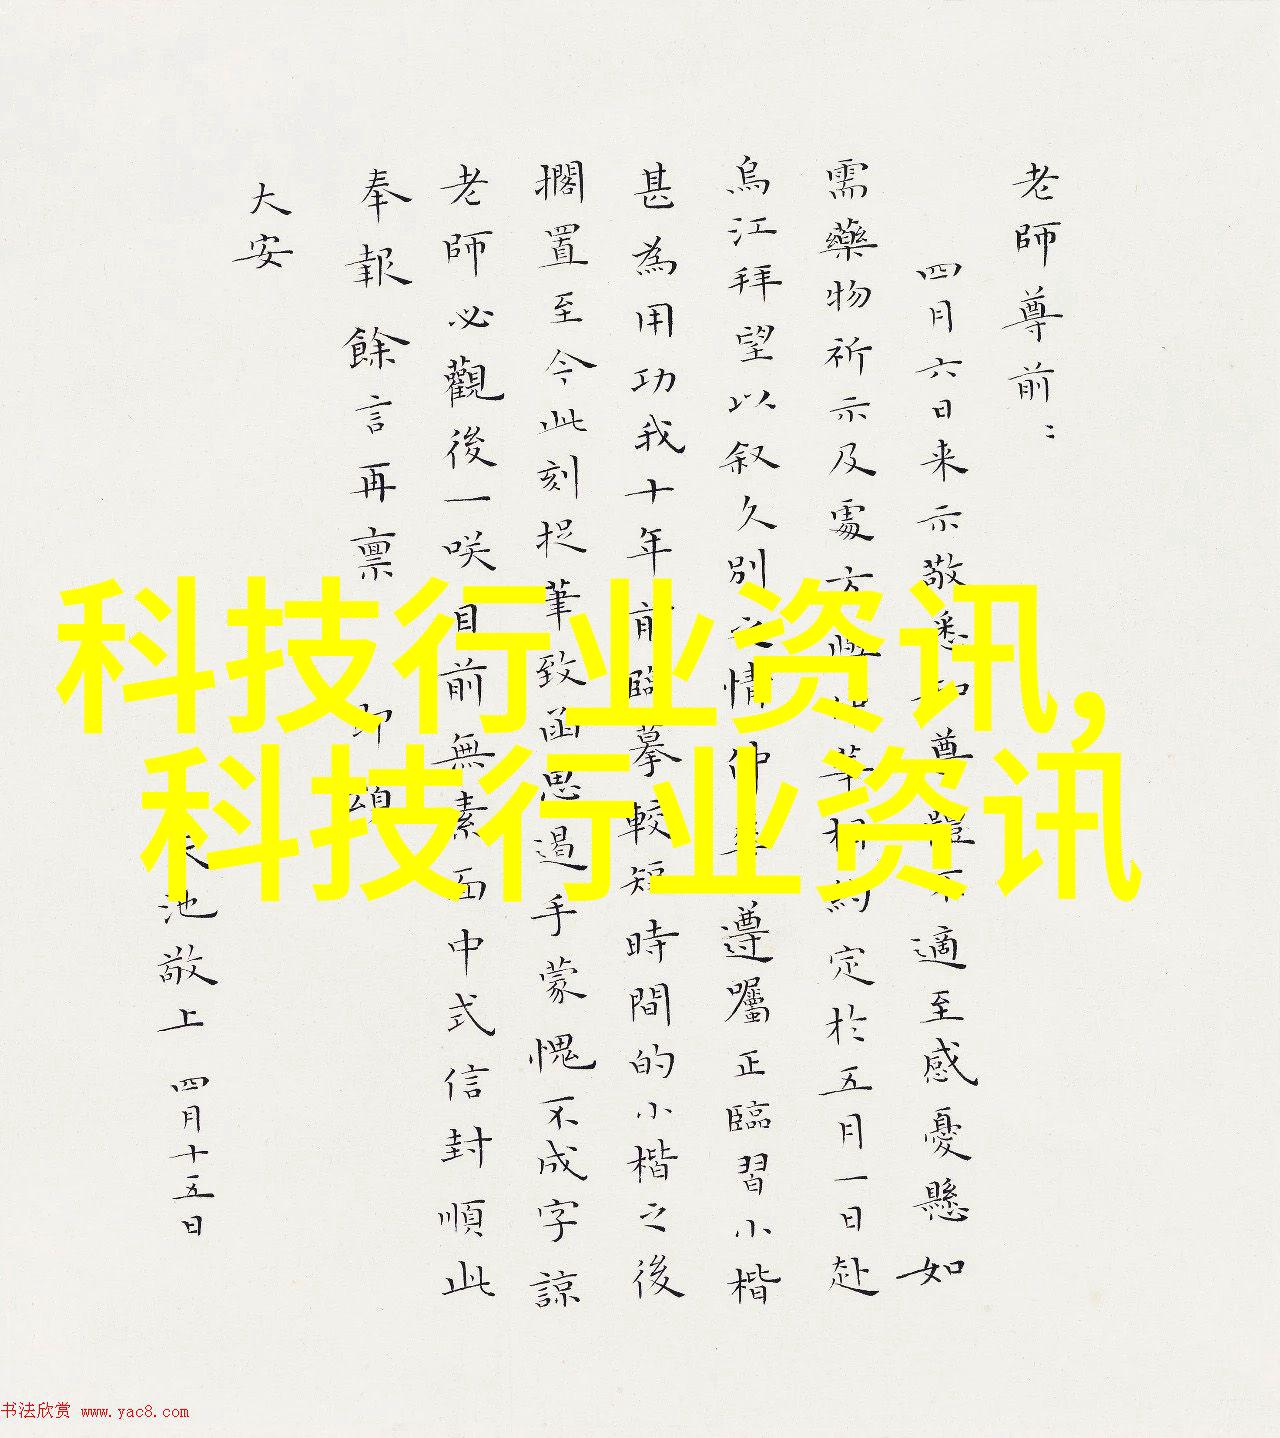 老師尊前：
四月六日来示敬悉 尊體不適至感憂懸如
需藥物祈示及處方 相約定於五月一日赴
烏江拜望以叙久別之情 遵囑正臨習小楷
甚為用功我十年前臨摹較短時間的小楷之後
擱置至今此刻捉筆致函思遏手蒙愧不成字諒
老師必觀後一咲目前無素面中式信封順此
奉報餘言再禀 即頌
大安
池敬上 四月十五日
科技行业资讯,
科技行业资讯
书法欣赏 www.yac8.com